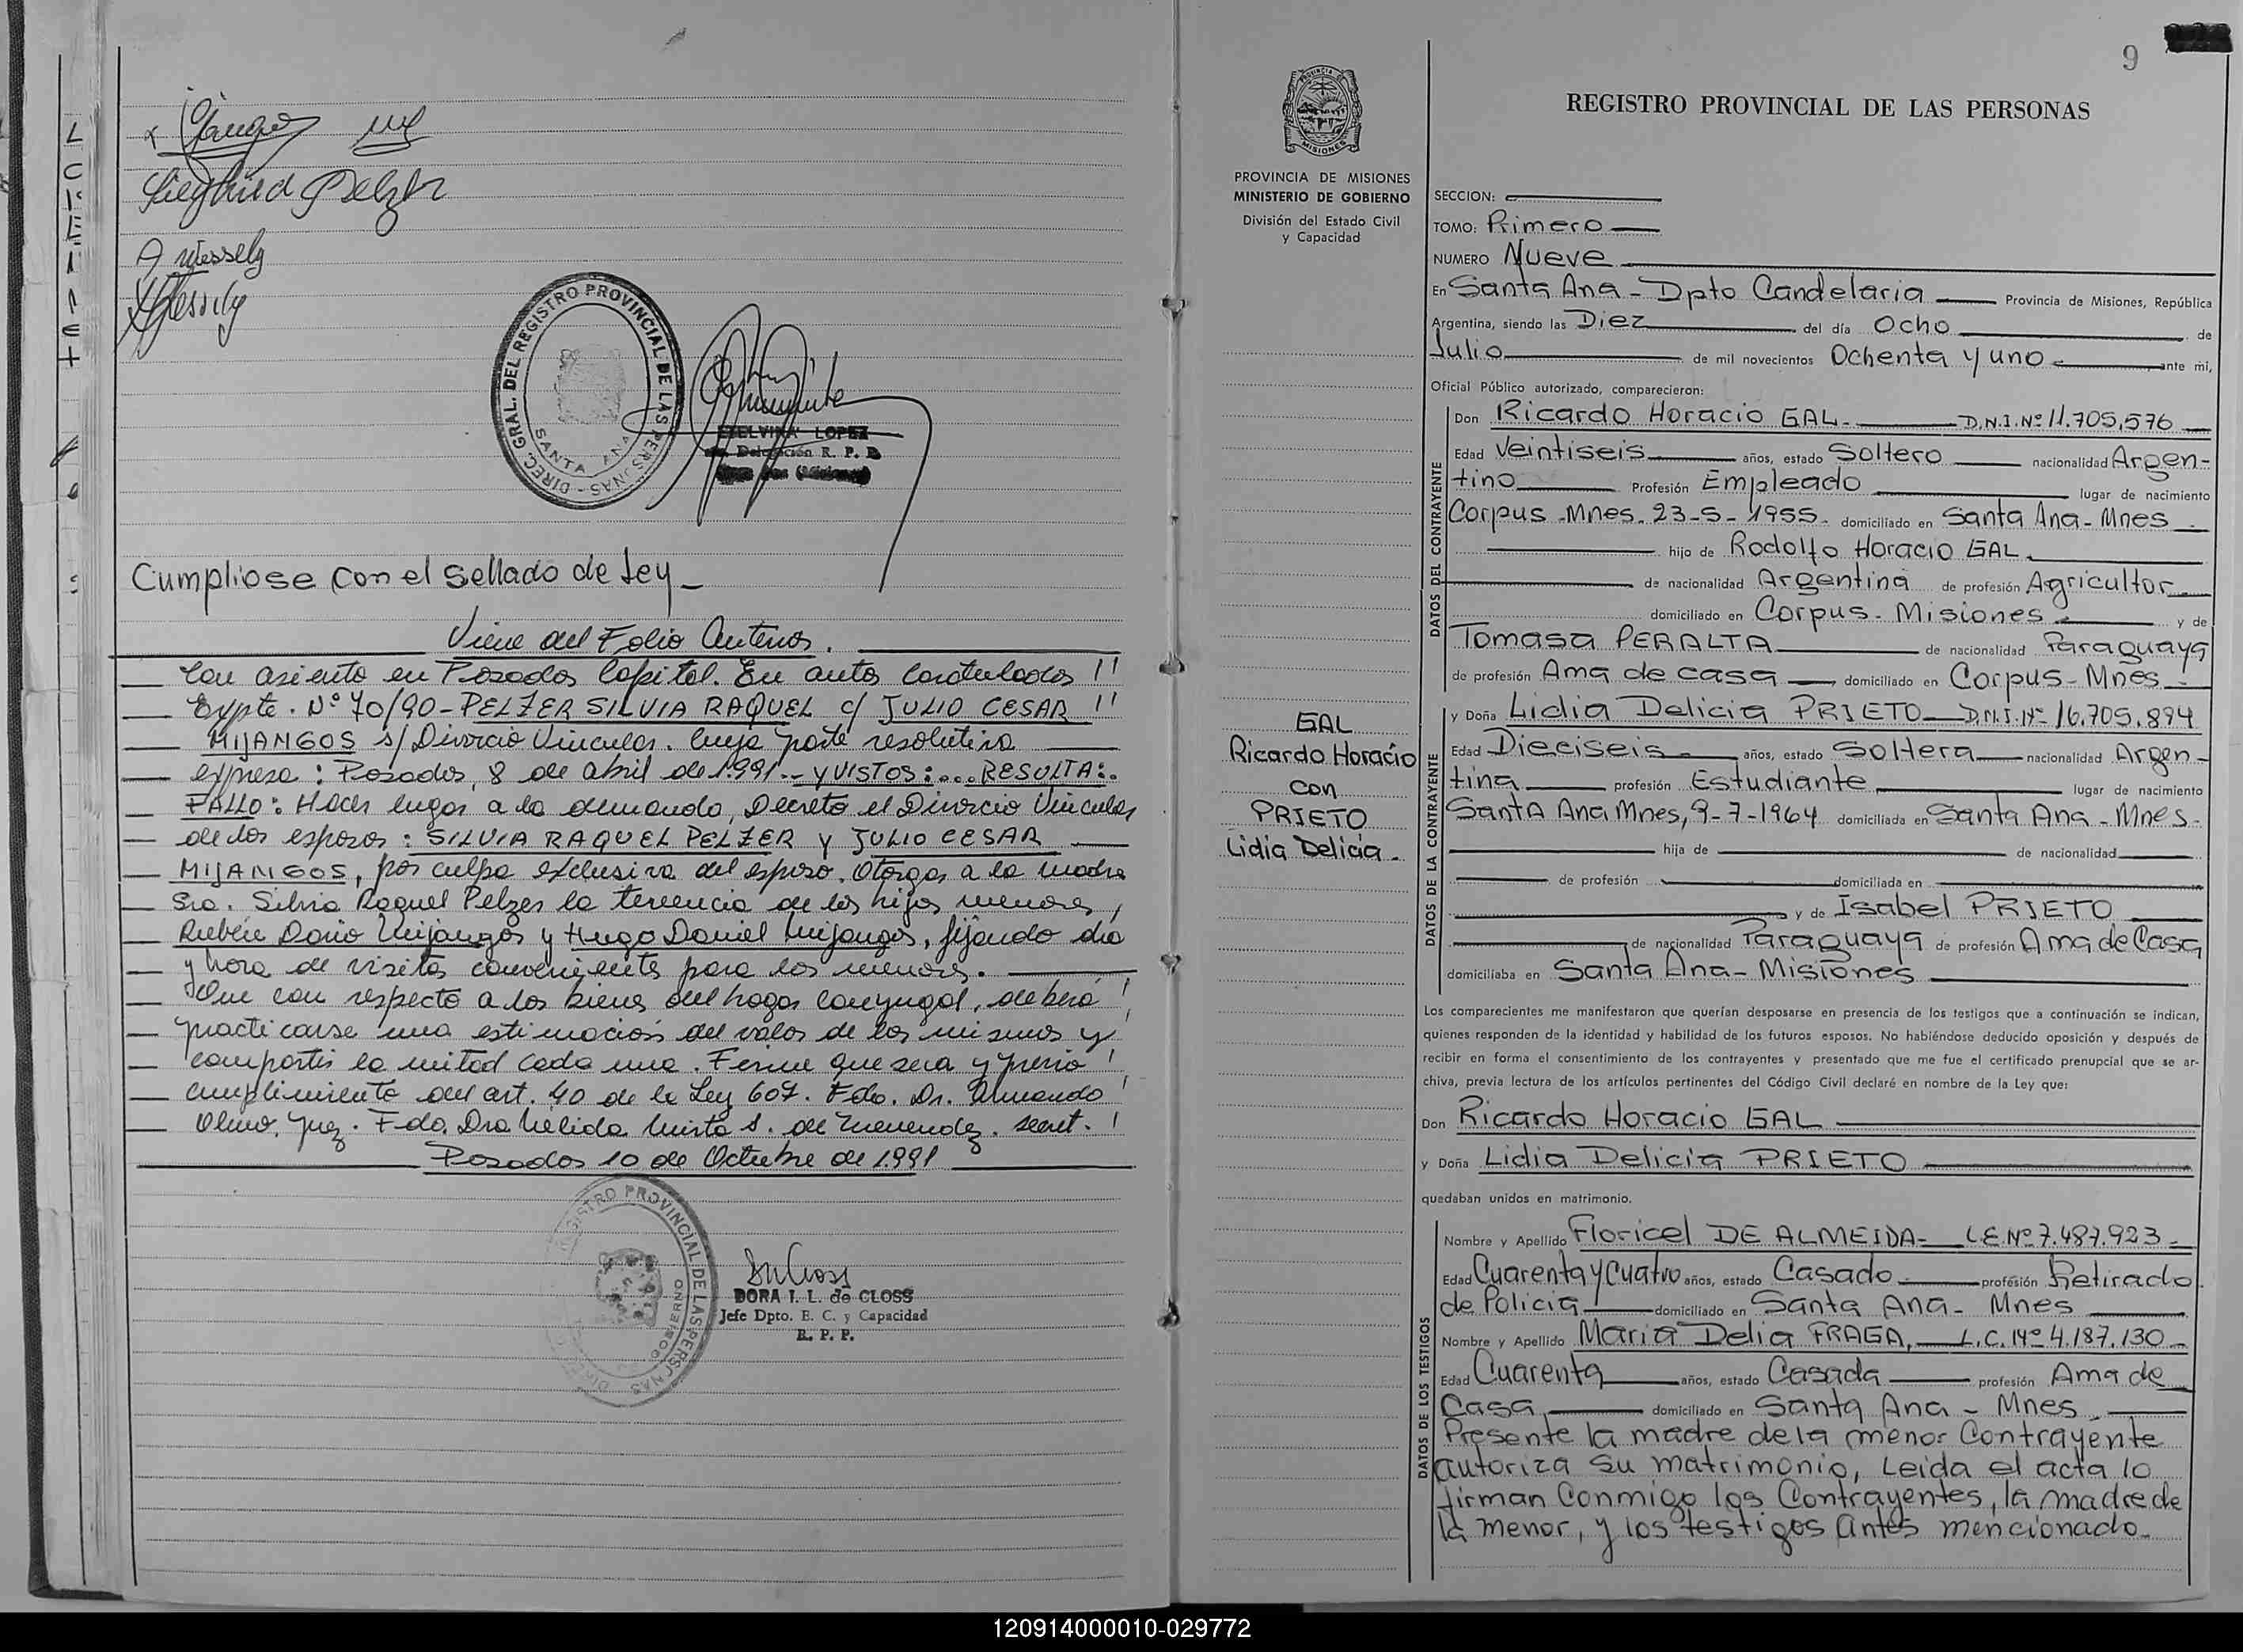 Siegfried Pelzer
A Wessely
DIREC. GRAL. DEL REGISTRO PROVINCIAL DE LAS PERSONAS -
SANTA ANA
ETELVINA LOPEZ
Delegación R. P. P.
Cumpliose con el sellado de Ley_
Viene del Folio Anterior.
Con asiento en Posadas Capital. En autos Caratulados !!
Expte. Nº 70/90 - PELZER SILVIA RAQUEL c/ JULIO CESAR !!
MIJANGOS s/ Divorcio Vincular. Cuya parte resolutiva
expresa: Posadas, 8 de abril de 1.991.- y VISTOS:... RESULTA:.
FALLO: Hacer lugar a la demanda, Decreto el Divorcio Vincular
de los esposos: SILVIA RAQUEL PELZER y JULIO CESAR
MIJANGOS, por culpa exclusiva del esposo. Otorgar a la madre
Sra. Silvia Raquel Pelzer la tenencia de los hijos menores,
Rubén Dario Mijangos y Hugo Daniel Mijangos, fijando dia
y hora de visitas conveniente para los menores.
Que con respecto a los bienes del hogar conyugal, deberá !
practicarse una estimación del valor de los mismos y !
compartir la mitad cada uno. Firme que sea y previo !
cumplimiento del art. 40 de la Ley 607. Fdo. Dr. Armando !
Olmo, Juez. Fdo. Dra Mirta S. de Menendez. Secret. !
Posadas 10 de Octubre de 1.991
REGISTRO PROVINCIAL DE LAS PERSONAS
DORA I. L. de CLOSS
Jefe Dpto. E. C. y Capacidad
R. P. P.
9
REGISTRO PROVINCIAL DE LAS PERSONAS
PROVINCIA DE MISIONES
MINISTERIO DE GOBIERNO
División del Estado Civil
y Capacidad
SECCION:
TOMO: Primero
NUMERO Nueve
En Santa Ana - Dpto Candelaria Provincia de Misiones, República
Argentina, siendo las Diez del día Ocho de
Julio de mil novecientos Ochenta y uno ante mi,
Oficial Público autorizado, comparecieron:
DATOS DEL CONTRAYENTE
Don Ricardo Horacio GAL. D.N.I. Nº 11.705.576
Edad Veintiseis años, estado Soltero nacionalidad Argen-
tino Profesión Empleado lugar de nacimiento
Corpus - Mnes. 23-5-1955. domiciliado en Santa Ana - Mnes
hijo de Rodolfo Horacio GAL
de nacionalidad Argentina de profesión Agricultor
domiciliado en Corpus - Misiones y de
Tomasa PERALTA de nacionalidad Paraguaya
de profesión Ama de casa domiciliado en Corpus - Mnes
GAL
Ricardo Horacio
con
PRIETO
Lidia Delicia.
DATOS DE LA CONTRAYENTE
y Doña Lidia Delicia PRIETO D.N.I. Nº 16.705.894
Edad Dieciseis años, estado Soltera nacionalidad Argen-
tina profesión Estudiante lugar de nacimiento
Santa Ana Mnes, 9-7-1964 domiciliada en Santa Ana - Mnes.
hija de de nacionalidad
de profesión domiciliada en
y de Isabel PRIETO
de nacionalidad Paraguaya de profesión Ama de Casa
domiciliaba en Santa Ana - Misiones
Los comparecientes me manifestaron que querían desposarse en presencia de los testigos que a continuación se indican,
quienes responden de la identidad y habilidad de los futuros esposos. No habiéndose deducido oposición y después de
recibir en forma el consentimiento de los contrayentes y presentado que me fue el certificado prenupcial que se ar-
chiva, previa lectura de los artículos pertinentes del Código Civil declaré en nombre de la Ley que:
Don Ricardo Horacio GAL
y Doña Lidia Delicia PRIETO
quedaban unidos en matrimonio.
DATOS DE LOS TESTIGOS
Nombre y Apellido Floricel DE ALMEIDA - L.E. Nº 7.487.923
Edad Cuarenta y Cuatro años, estado Casado profesión Retirado
de Policia domiciliado en Santa Ana - Mnes
Nombre y Apellido Maria Delia FRAGA, L.C. Nº 4.187.130
Edad Cuarenta años, estado Casada profesión Ama de
Casa domiciliado en Santa Ana - Mnes
Presente la madre de la menor Contrayente
autoriza su matrimonio, Leida el acta lo
firman Conmigo los Contrayentes, la madre de
la menor, y los testigos antes mencionado.
120914000010-029772